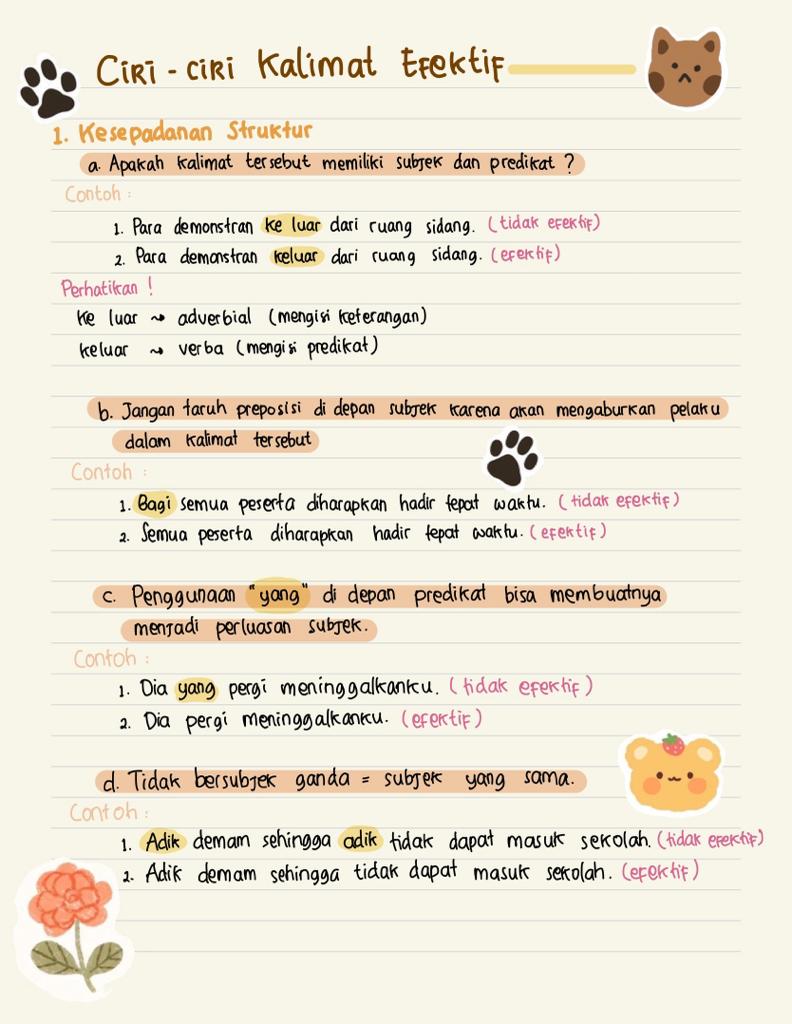 Ciri - ciri Kalimat Efektif
1. Kesepadanan Struktur
a. Apakah kalimat tersebut memiliki subjek dan predikat ?
Contoh :
1. Para demonstran ke luar dari ruang sidang. (tidak efektif)
2. Para demonstran keluar dari ruang sidang. (efektif)
Perhatikan !
Ke luar ~> adverbial (mengisi keterangan)
keluar ~> verba (mengisi predikat)
b. Jangan taruh preposisi di depan subjek karena akan mengaburkan pelaku
dalam kalimat tersebut
Contoh :
1. Bagi semua peserta diharapkan hadir tepat waktu. (tidak efektif)
2. Semua peserta diharapkan hadir tepat waktu. (efektif)
c. Penggunaan "yang" di depan predikat bisa membuatnya
menjadi perluasan subjek.
Contoh :
1. Dia yang pergi meninggalkanku. (tidak efektif)
2. Dia pergi meninggalkanku. (efektif)
d. Tidak bersubjek ganda = subjek yang sama.
Contoh :
1. Adik demam sehingga adik tidak dapat masuk sekolah. (tidak efektif)
2. Adik demam sehingga tidak dapat masuk sekolah. (efektif)